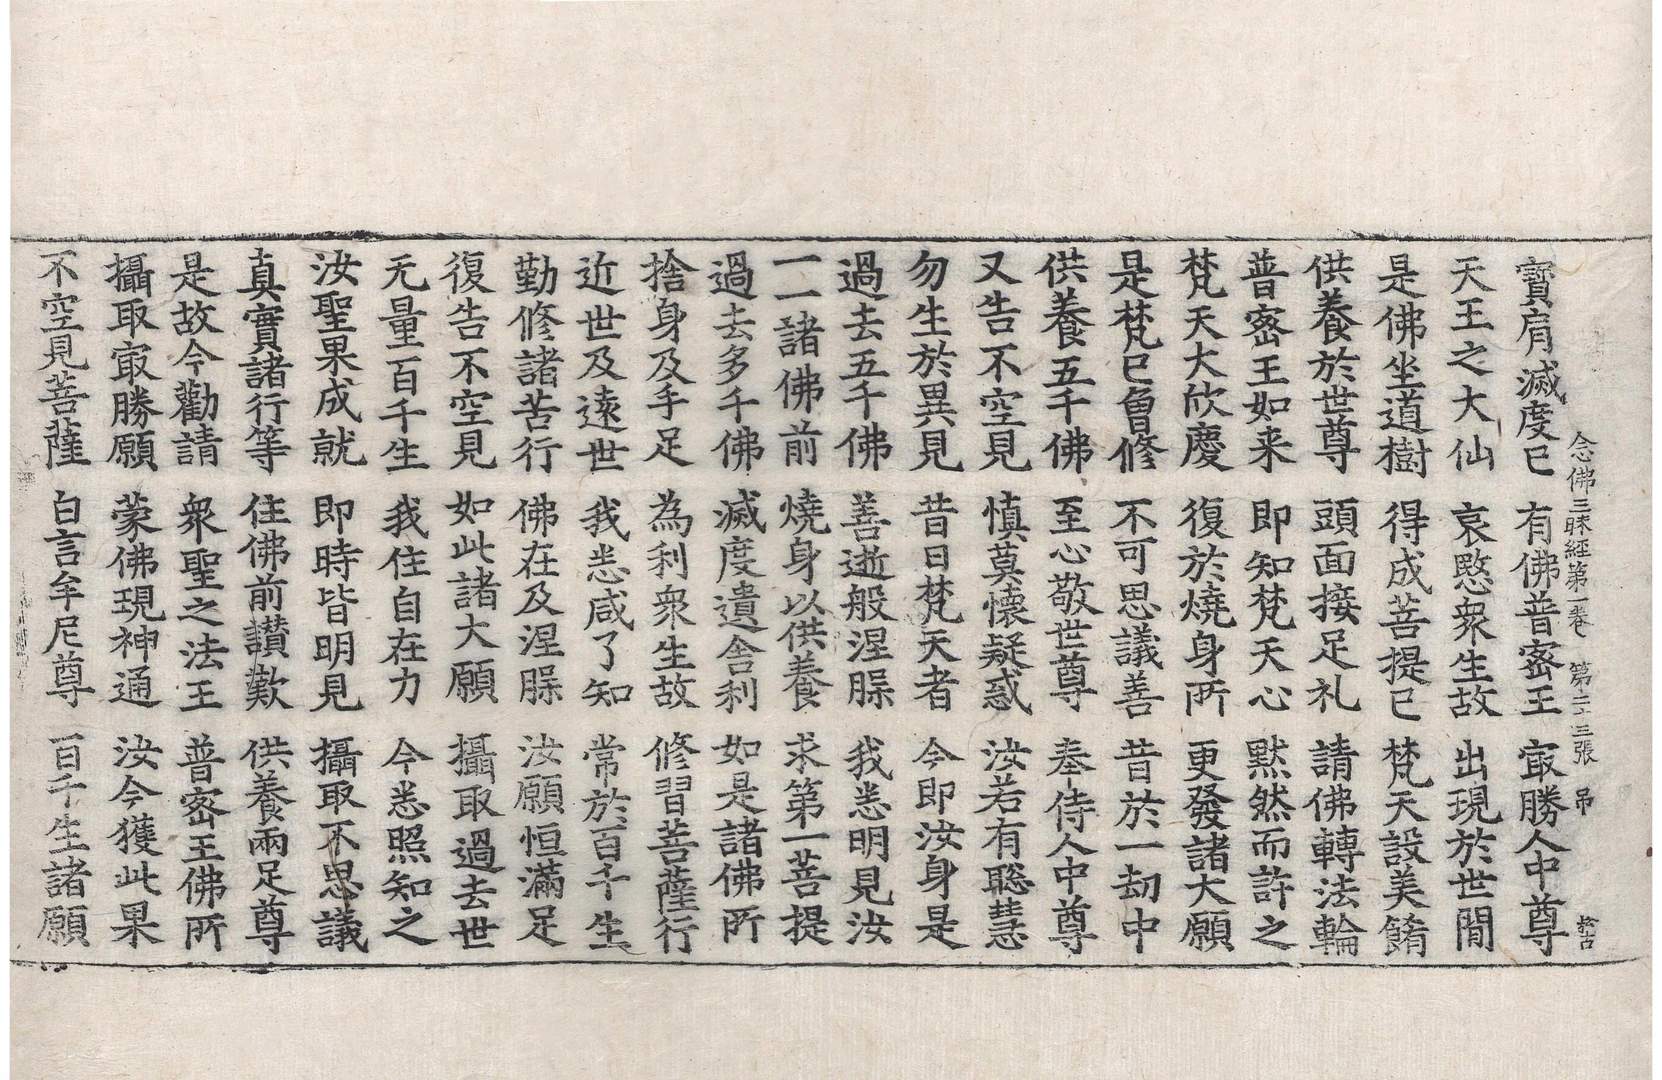 念佛三昧經第一卷 第二十三張 吊
寶肩滅度已 有佛普密王 㝡勝人中尊
天王之大仙 哀愍衆生故 出現於世閒
是佛坐道樹 得成菩提已 梵天設美餚
供養於世尊 頭面接足礼 請佛轉法輪
普密王如来 即知梵天心 黙然而許之
梵天大欣慶 復於燒身所 更發諸大願
是梵已曾修 不可思議善 昔於一劫中
供養五千佛 至心敬世尊 奉侍人中尊
又告不空見 慎莫懷疑惑 汝若有聡慧
勿生於異見 昔日梵天者 今即汝身是
過去五千佛 善逝般涅槃 我悉明見汝
一一諸佛前 燒身以供養 求第一菩提
過去多千佛 滅度遺舎利 如是諸佛所
捨身及手足 為利衆生故 修習菩薩行
近世及遠世 我悉咸了知 常於百千生
勤修諸苦行 佛在及涅槃 汝願恒滿足
復告不空見 如此諸大願 攝取過去世
无量百千生 我住自在力 今悉照知之
汝聖果成就 即時皆明見 攝取不思議
真實諸行等 住佛前讃歎 供養兩足尊
是故今勸請 衆聖之法王 普密王佛所
攝取㝡勝願 蒙佛現神通 汝今獲此果
不空見菩薩 白言牟尼尊 百千生諸願